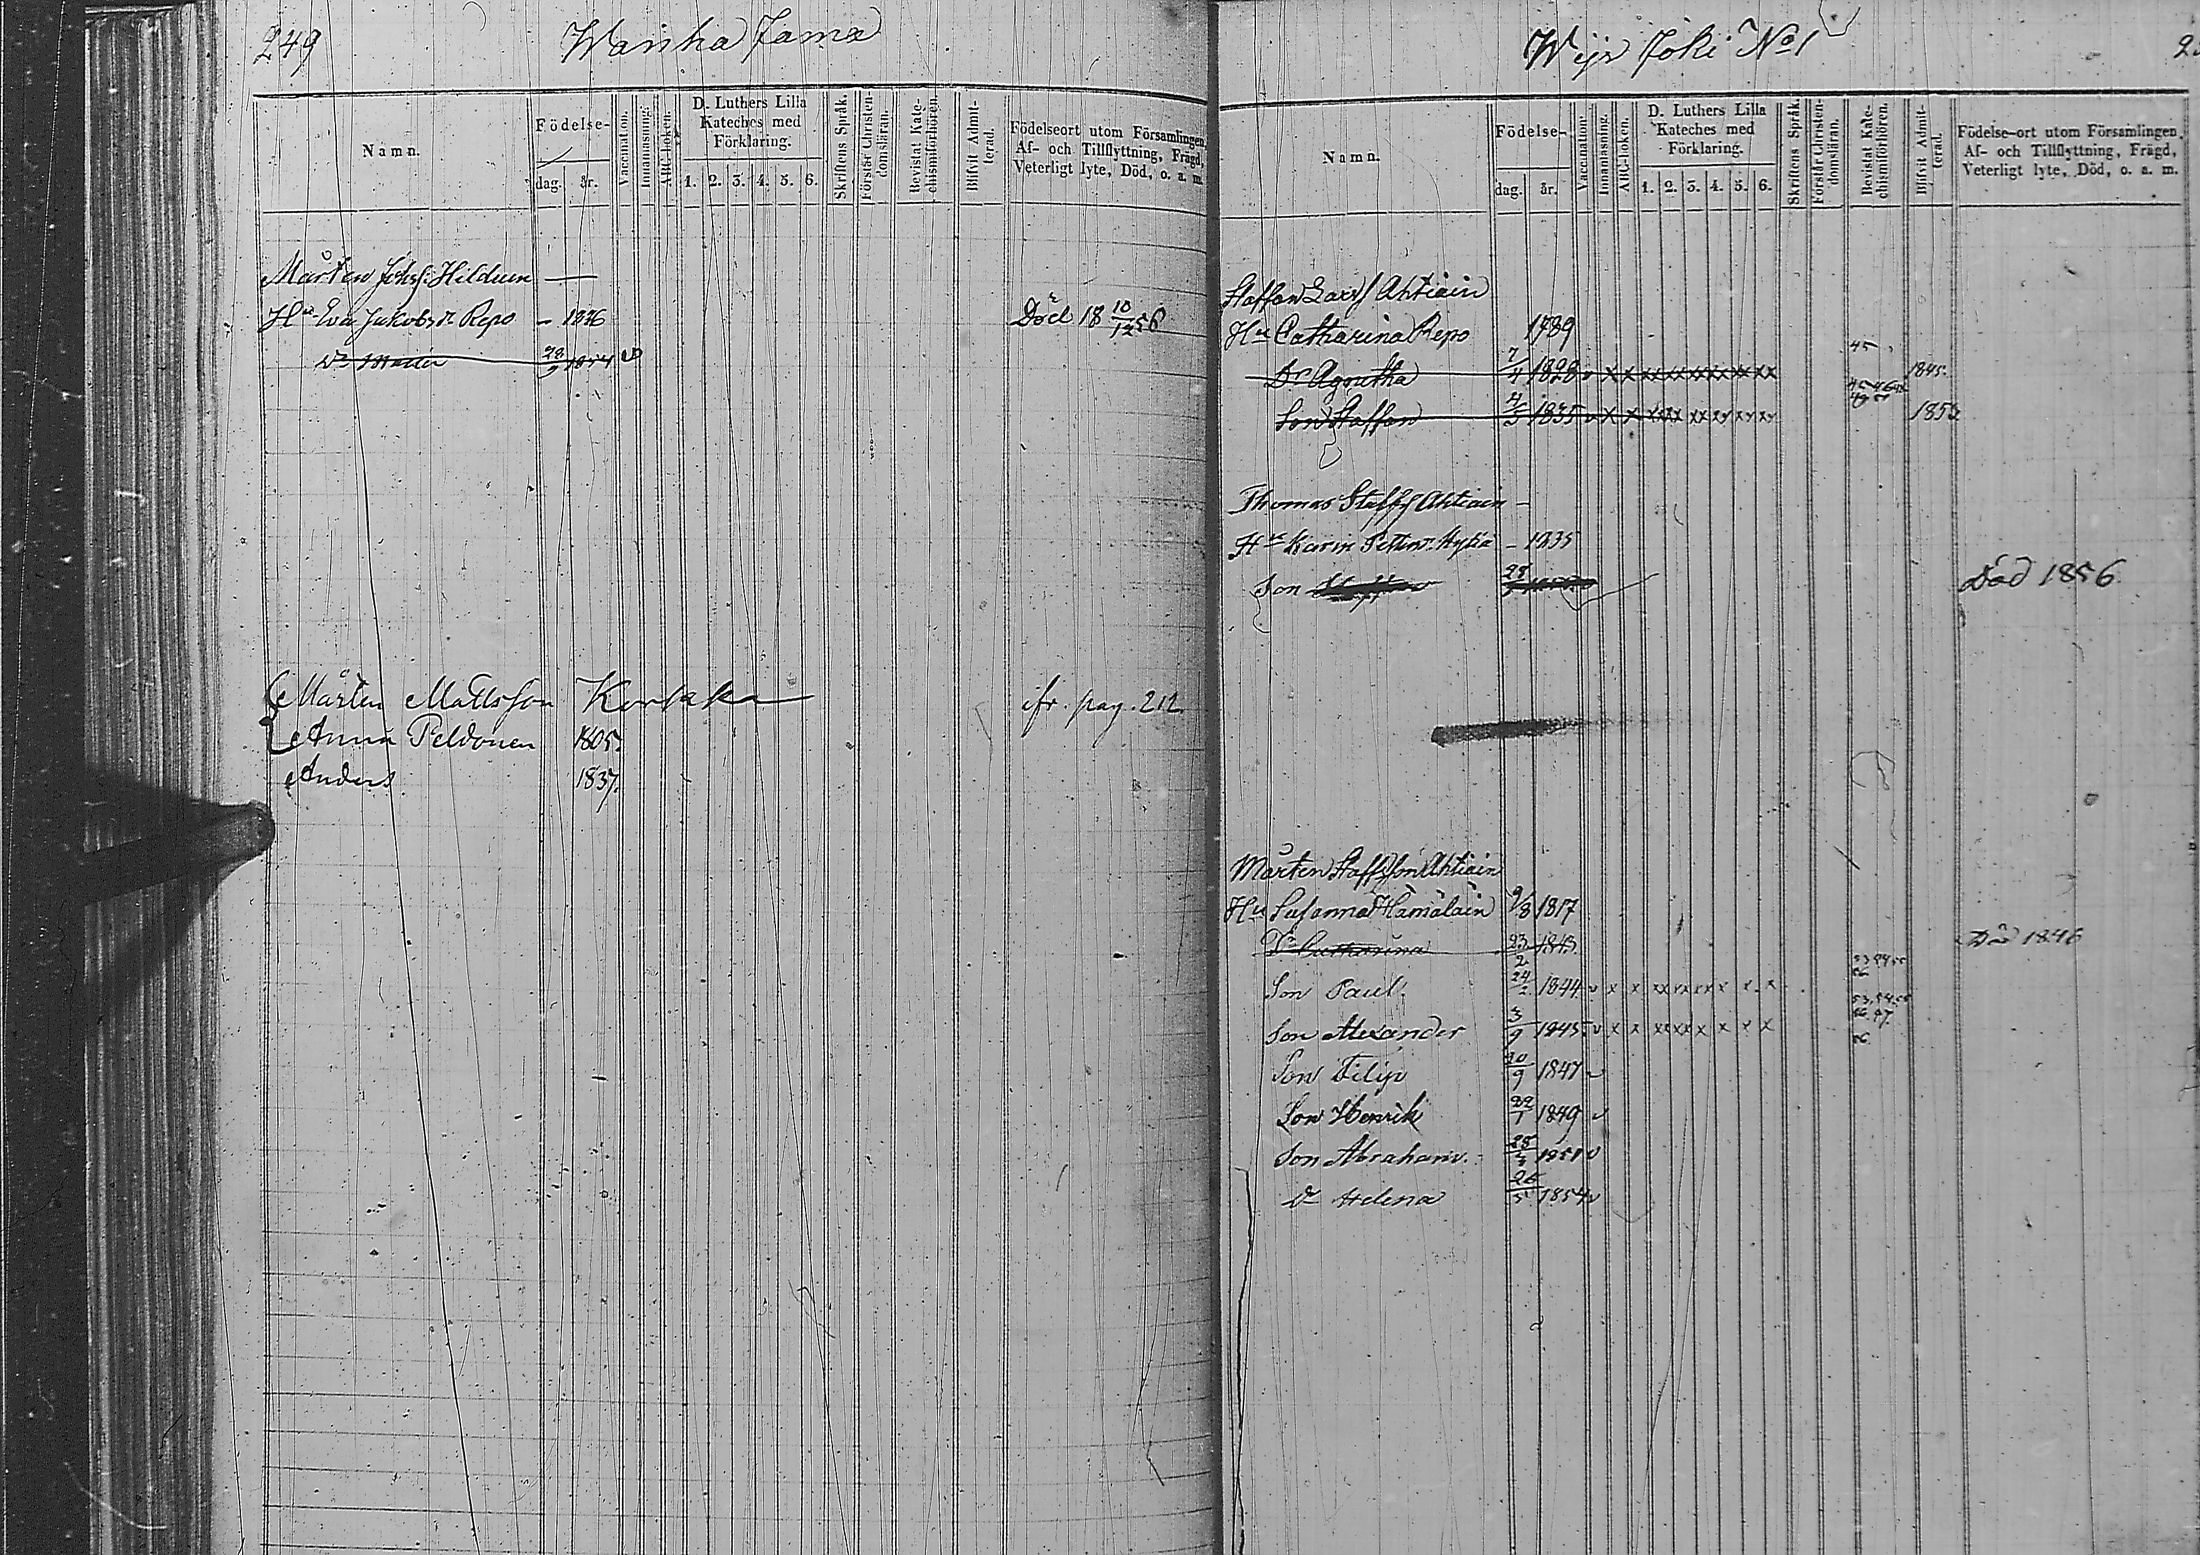 249
Wanha Jama
Namn.
Födelse-
dag.
år.
Vaccination.
Innanläsning.
ABC-boken.
D. Luthers Lilla
Kateches med
Förklaring.
1. 2. 3. 4. 5. 6.
Skriftens Språk.
Förstår Christen-
domsläran.
Bevistat Kate-
chismiförhören.
Blifvit Admit-
terad.
Födelseort utom Församlingen,
Af- och Tillflyttning, Frägd,
Veterligt lyte, Död, o. a. m.
Mårten Johsf: Hilduen —
Hu Eva Jakobsdr Repo - 1826 Död 18 10/12 56
Dr Maria 28 1854 v
Mårten Mattsson Korkka cfr. pag. 212
Anna Peldonen 1805.
Anders 1837.
Wijs Joki No 1
Namn.
Födelse-
dag.
år.
Vaccination.
Innanläsning.
ABC-boken.
D. Luthers Lilla
Kateches med
Förklaring.
1. 2. 3. 4. 5. 6.
Skriftens Språk.
Förstår Christen-
domsläran.
Bevistat Kate-
chismiförhören.
Blifvit Admit-
terad.
Födelse-ort utom Församlingen,
Af- och Tillflyttning, Frägd,
Veterligt lyte, Död, o. a. m.
Staffan Larsf Ahtiain
Hu Catharina Repo 1789
Dr Agnetha 7/4 1828 v x x xx xx xx xx xx xx 45 1845.
Son Staffan 4/5 1835 v x x xx xx xx xx xx xx 1853
Thomas Staffsf Ahtiain -
Hu Karin Pettersdr Hytiä - 1835
Son Död 1856
Mårten Staffsson Ahtiain
Hu Susanna Hämäläin 9/8 1817
Dr Catharina 23/2 1843. Död 1846
Son Paul. 24/2 1844 v x x xx xx xx x x x 53,54,55
Son Alexander 3/9 1845 v x x xx xx x x x x 53,54,55
Son Filip 20/9 1847 v
Son Henrik 22/1 1849 v
Son Abraham. 1851 v
Dr Helena 26/5 1854 v